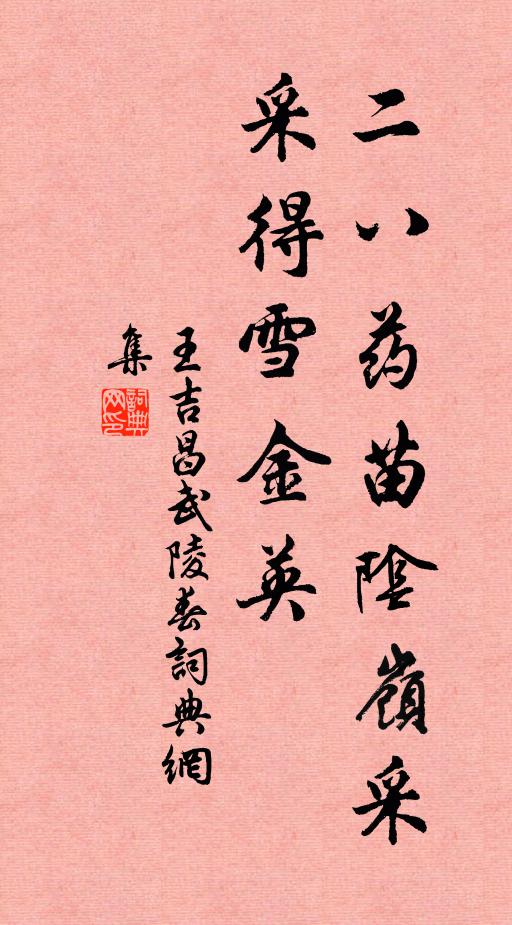 二八药苗陰嶺采
采得雪金英
王吉昌武陵春詞典網
集
詞典
网印